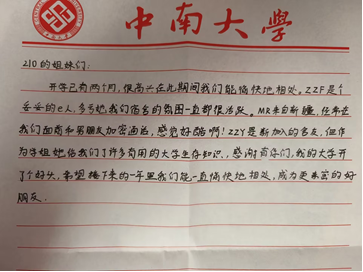 中南大學
210的姐妹们:
开学已有两个月,很高兴在此期间我们能愉快地相处。ZZF是个
妥妥的e人,多亏她我们宿舍的氛围一直都很活跃。MR来自新疆,经常在
我们面前和男朋友加密通话,感觉好酷啊!ZZY是新加入的舍友,但作
为学姐她给我们了许多有用的大学生存知识,感谢有你们,我的大学开
了个好头,希望接下来的一年里我们能一直愉快地相处,成为更亲密的好
朋友.